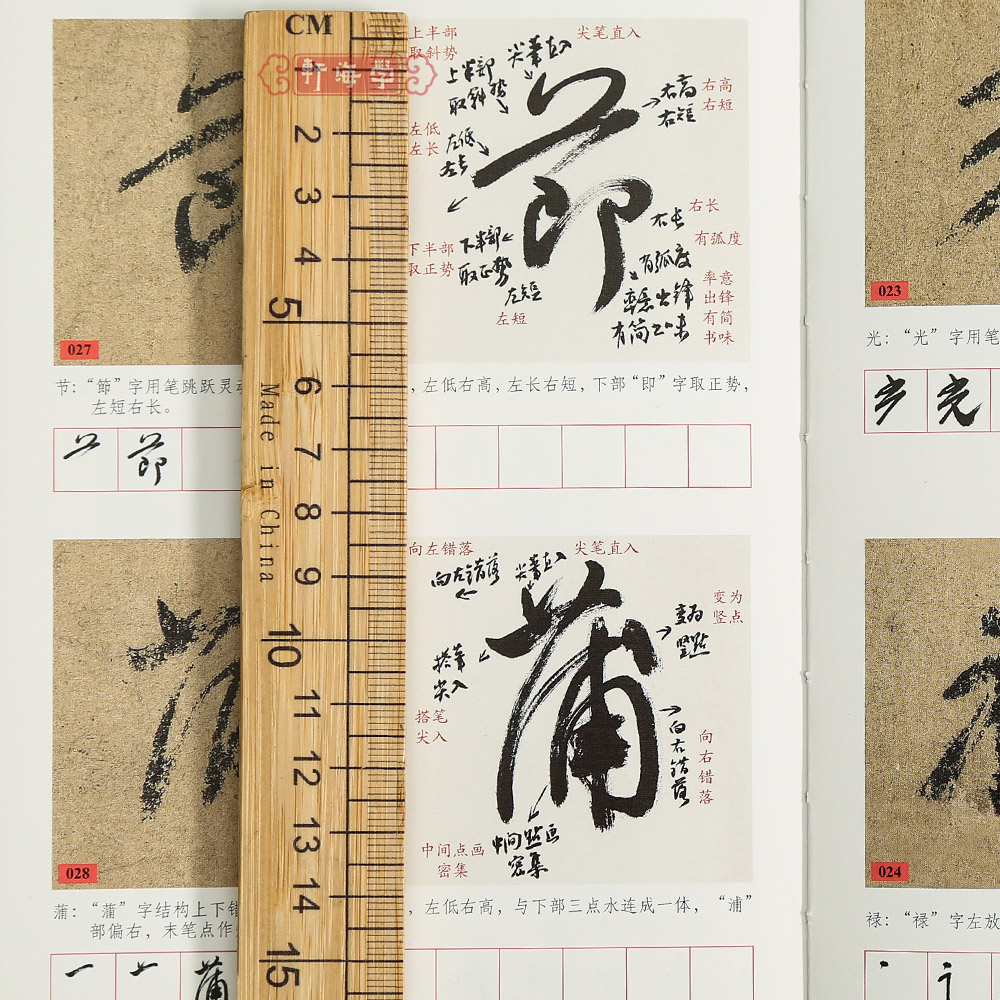 CM
1
2
3
4
5
6
7
8
9
10
11
12
13
14
15
Made in China
軒海學
上半部
取斜势
尖笔直入
上半部
取斜势
尖笔直入
左低
左长
左低
左长
右高
右短
右高
右短
節
右长
有弧度
右长
有弧度
下半部
取正势
下半部
取正势
左短
左短
率意出锋
有简书味
率意
出锋
有简
书味
027
节：“節”字用笔跳跃灵
，左低右高，左长右短，下部“即”字取正势，
左短右长。
節
向左错落
尖笔直入
向左错落
尖笔直入
变为
竖点
变为
竖点
搭笔
尖入
搭笔
尖入
蒲
向右错落
向右错落
中间点画
密集
中间点画
密集
028
蒲：“蒲”字结构上下错
，左低右高，与下部三点水连成一体，“浦”
部偏右，末笔点作
一
蒲
023
光：“光”字用笔
光
024
禄：“禄”字左放